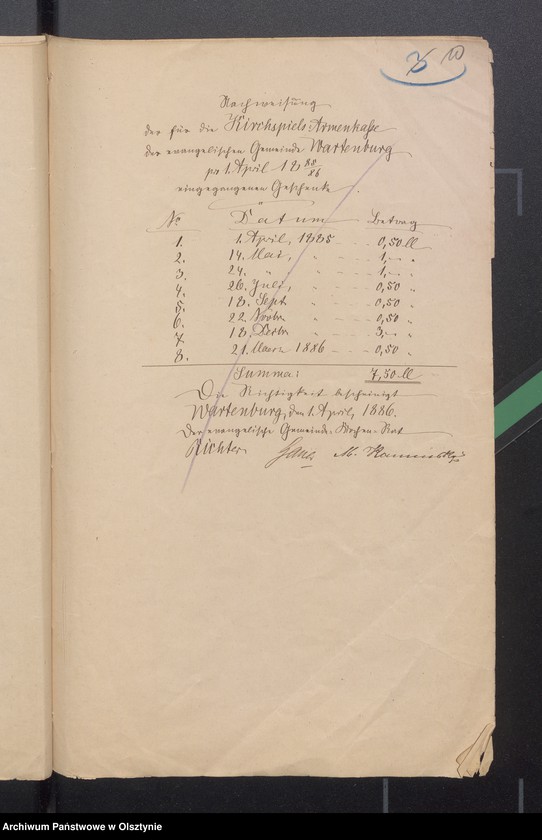 10
Nachweisung
der für die Kirchspiels Armenkasse
der evangelischen Gemeinde Wartenburg
pr 1. April 18 85/86
eingegangenen Geschenke.
No Datum Betrag
1. 1. April, 1885 - - 0,50 M
2. 14. Mai, " - - 1,- "
3. 24. " " - - 1,- "
4. 26. Juli, " - - 0,50 "
5. 18. Sept " - - 0,50 "
6. 22. Novbr " - - 0,50 "
7. 18. Dezbr " - - 3,- "
8. 21. Maerz 1886 - - 0,50 "
Summa: 7,50 M
Die Richtigkeit bescheinigt
Wartenburg, den 1. April, 1886.
Der evangelische Gemeinde-Kirchen-Rat
Richter M. Kaminski
Archiwum Państwowe w Olsztynie